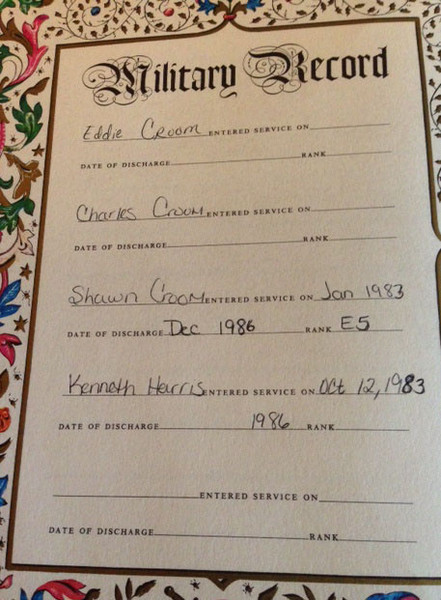 Military Record
Eddie Croom ENTERED SERVICE ON
DATE OF DISCHARGE RANK
Charles Croom ENTERED SERVICE ON
DATE OF DISCHARGE RANK
Shawn Croom ENTERED SERVICE ON Jan 1983
DATE OF DISCHARGE Dec 1986 RANK E5
Kenneth Harris ENTERED SERVICE ON Oct 12, 1983
DATE OF DISCHARGE 1986 RANK
ENTERED SERVICE ON
DATE OF DISCHARGE RANK